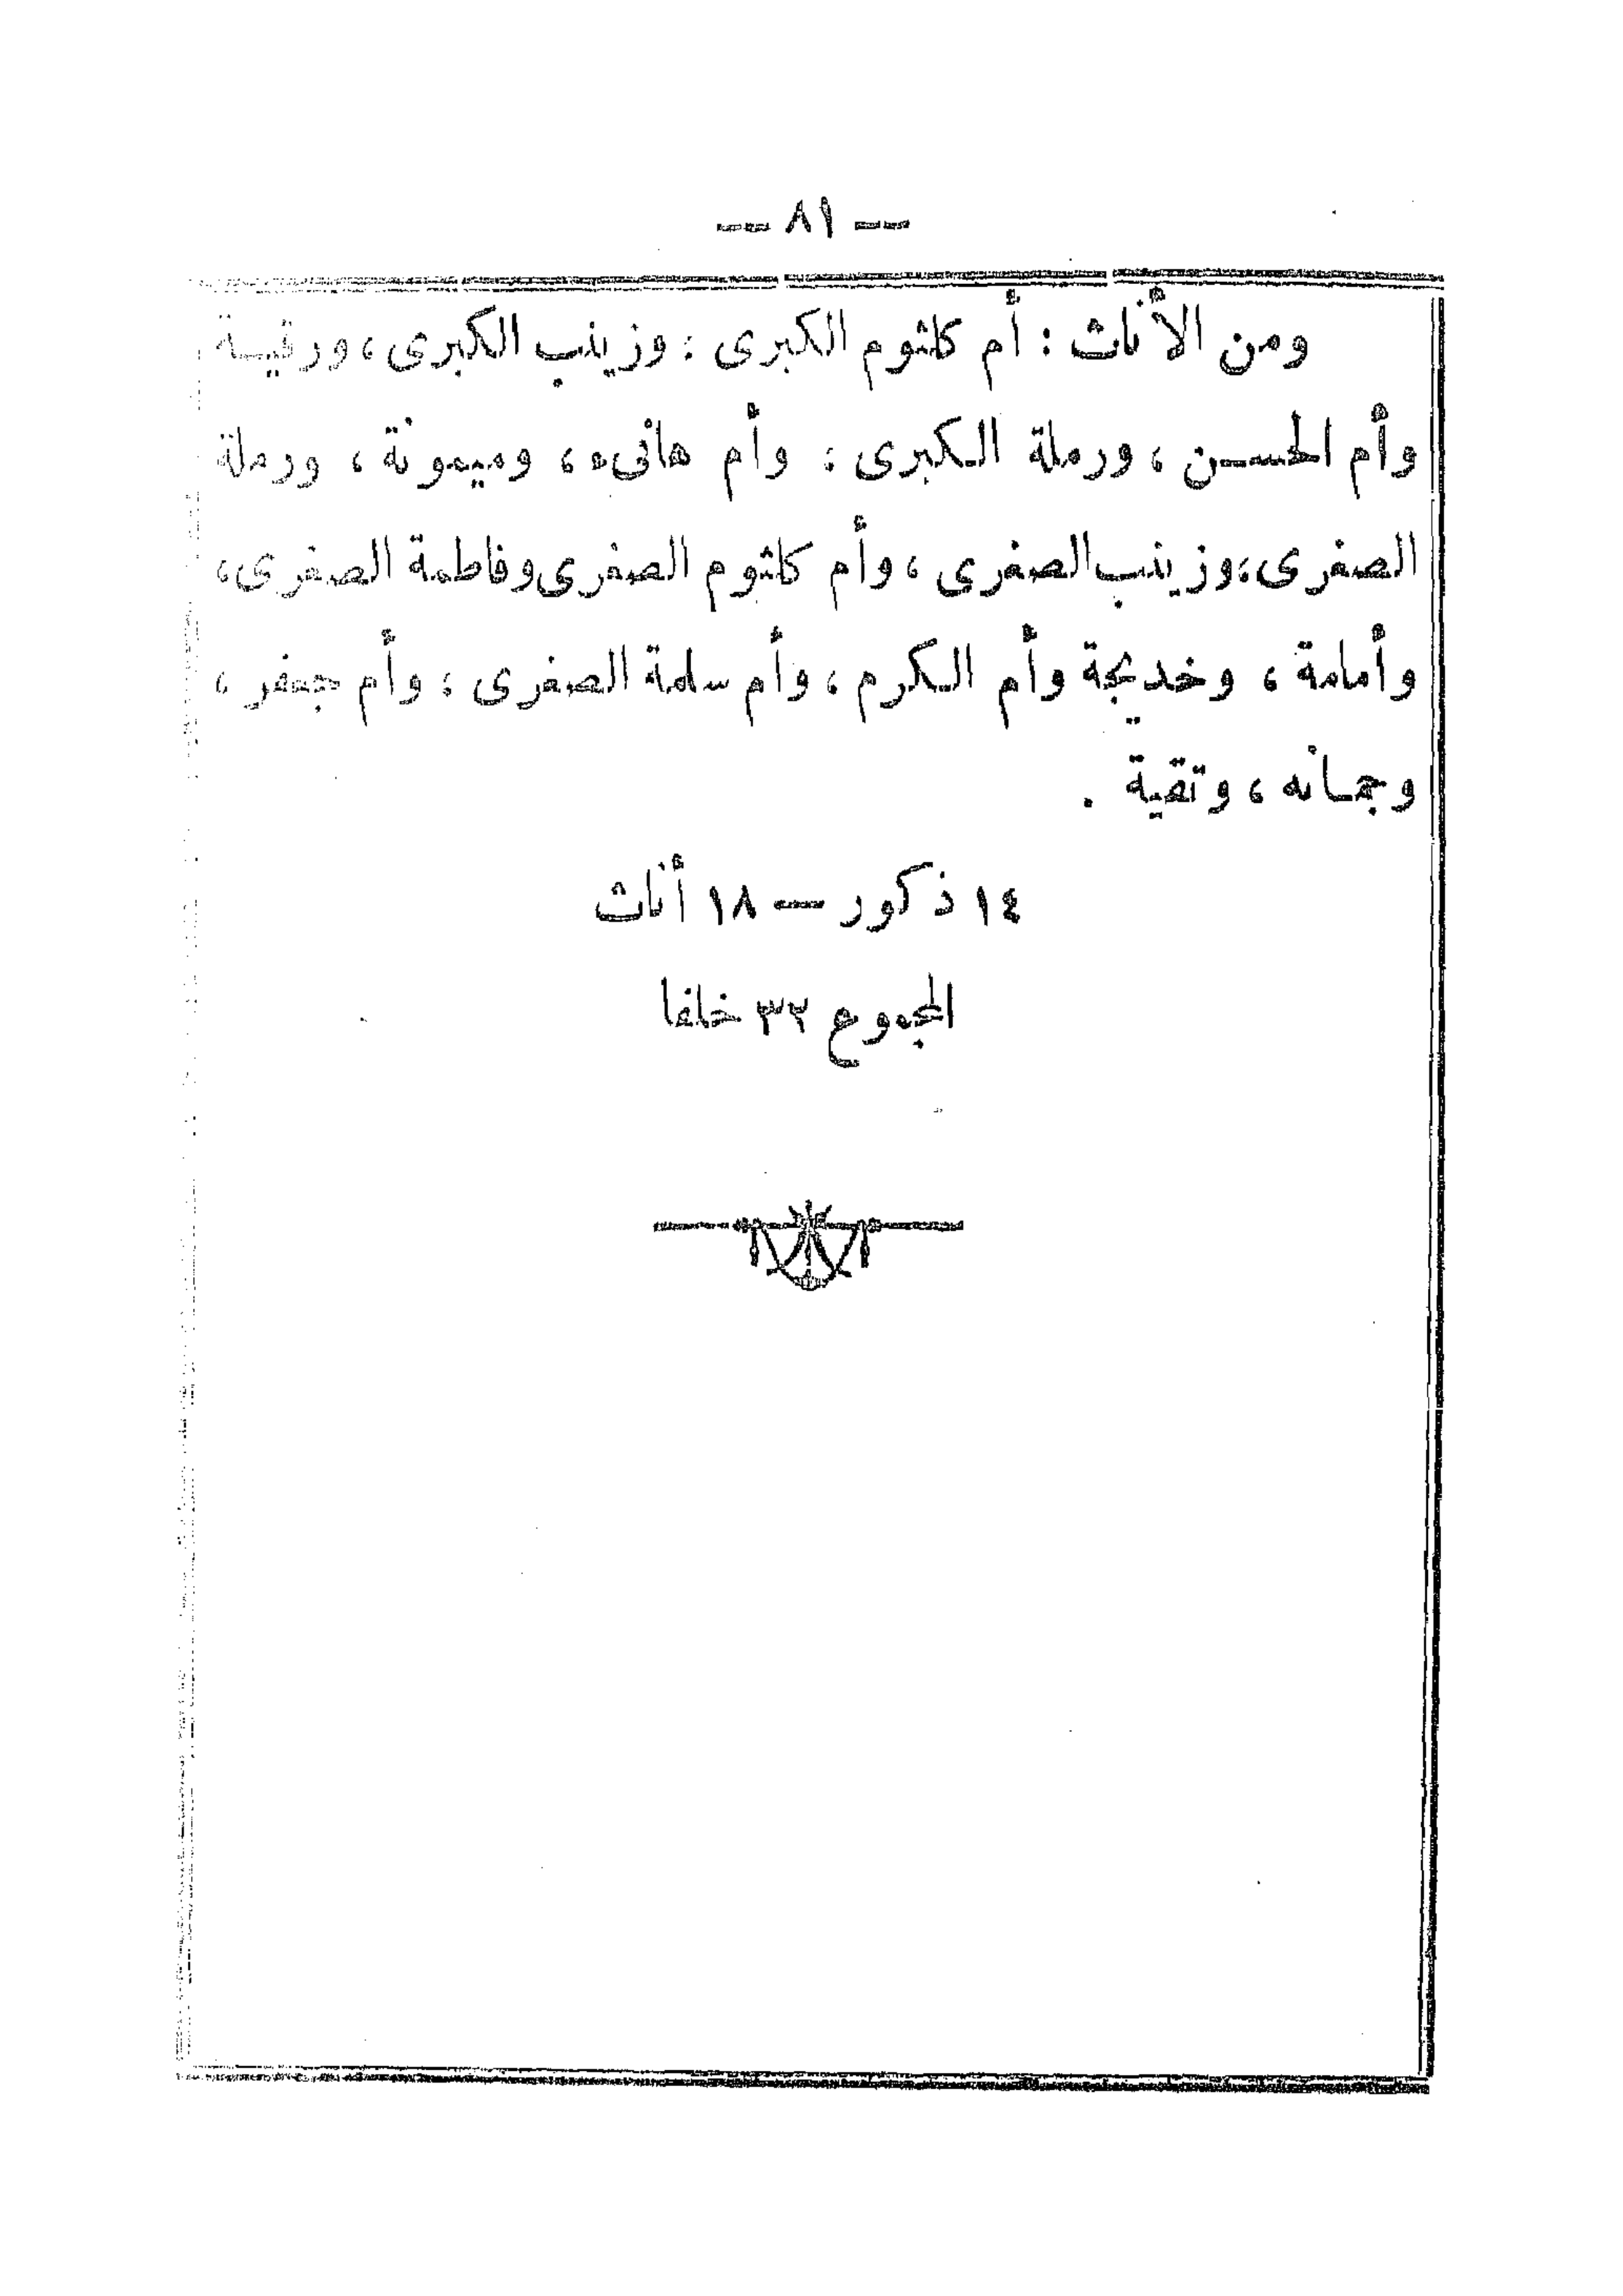 — ٨١ —
ومن الأناث : أم كلثوم الكبرى ؛ وزينب الكبرى ، ورقية
وأم الحسن ، ورملة الكبرى ؛ وأم هانىء ، وميمونة ، ورملة
الصغرى ، وزينب الصغرى ، وأم كلثوم الصغرى وفاطمة الصغرى ،
وأمامة ، وخديجة وأم الكرم ، وأم سلمة الصغرى ؛ وأم جعفر ،
وجمانه ، وتقية .
١٤ ذكور — ١٨ أناث
المجموع ٣٢ خلفا